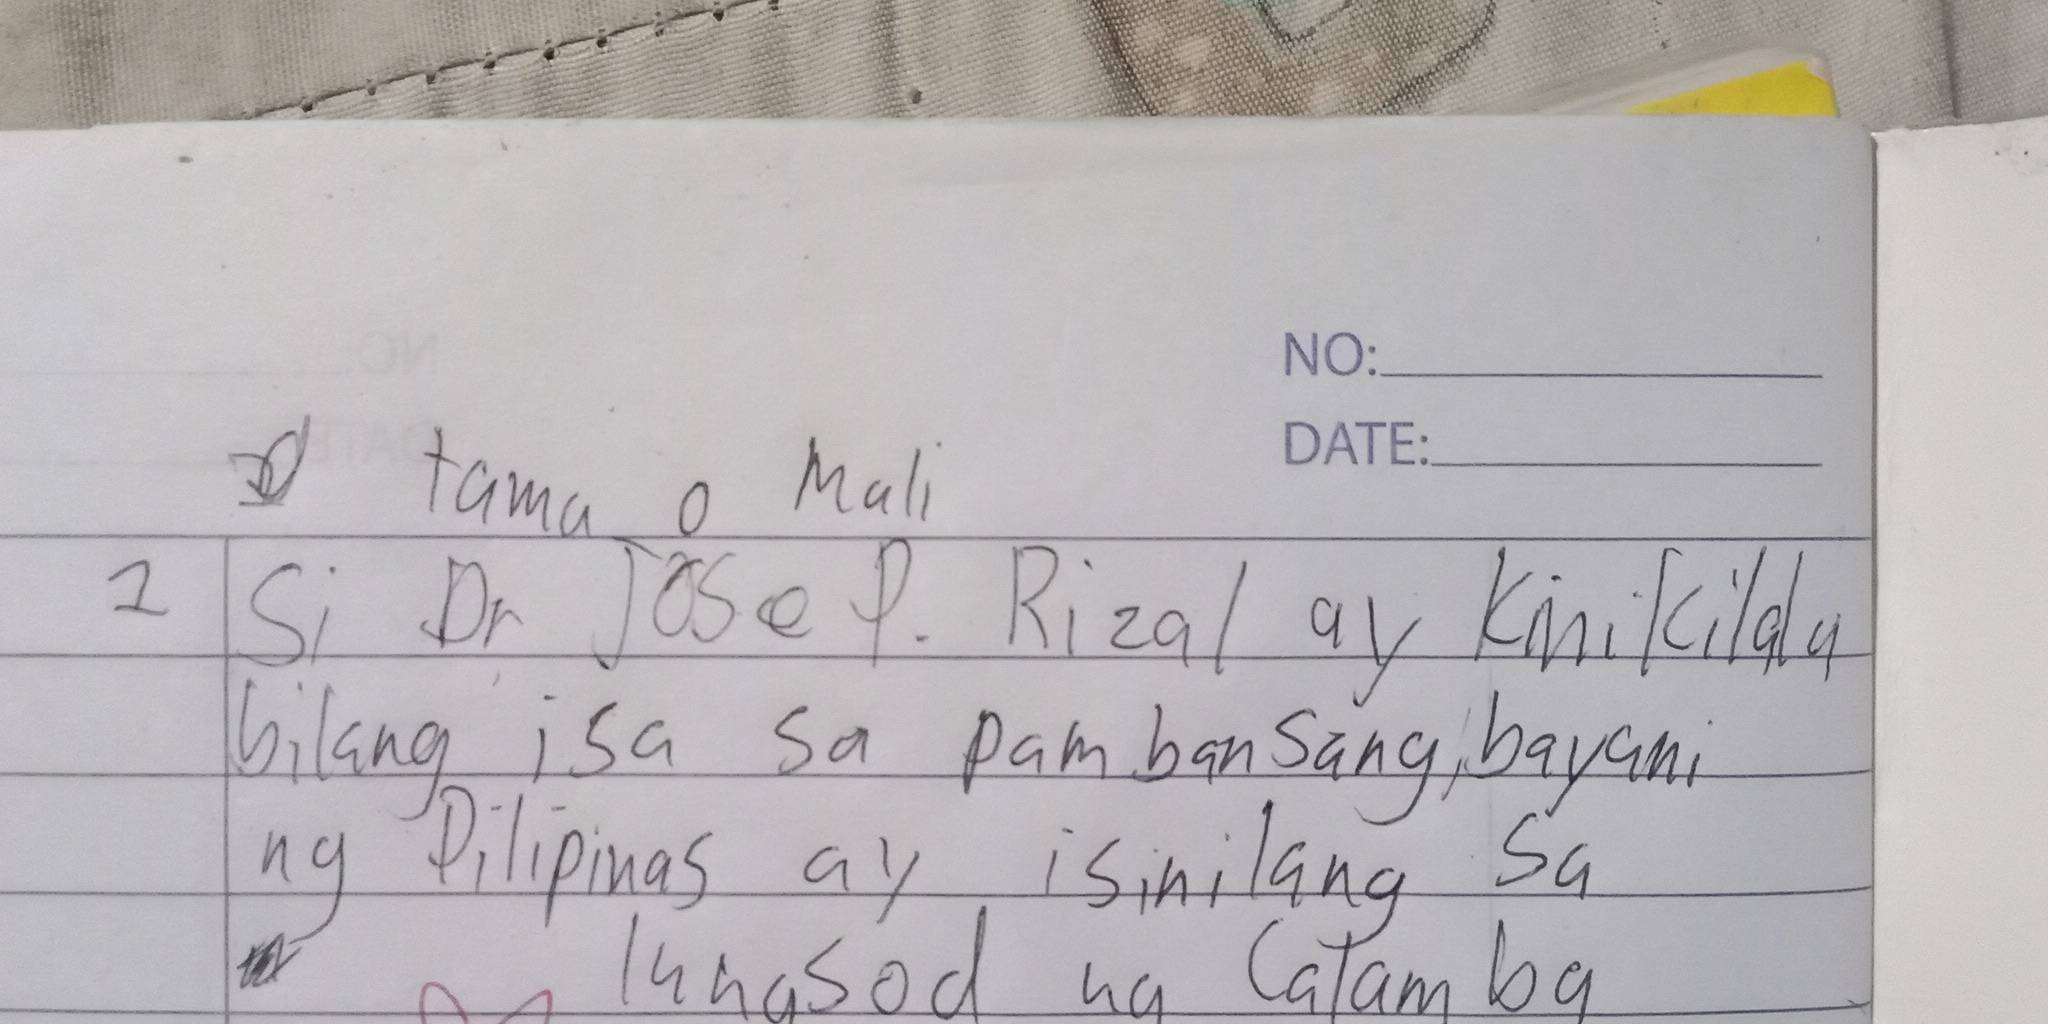 NO:
DATE:
tama o Mali
1 Si Dr Jose P. Rizal ay Kinikilala
bilang isa sa pambansang, bayani
ng Pilipinas ay isinilang sa
lungsod ng Calamba